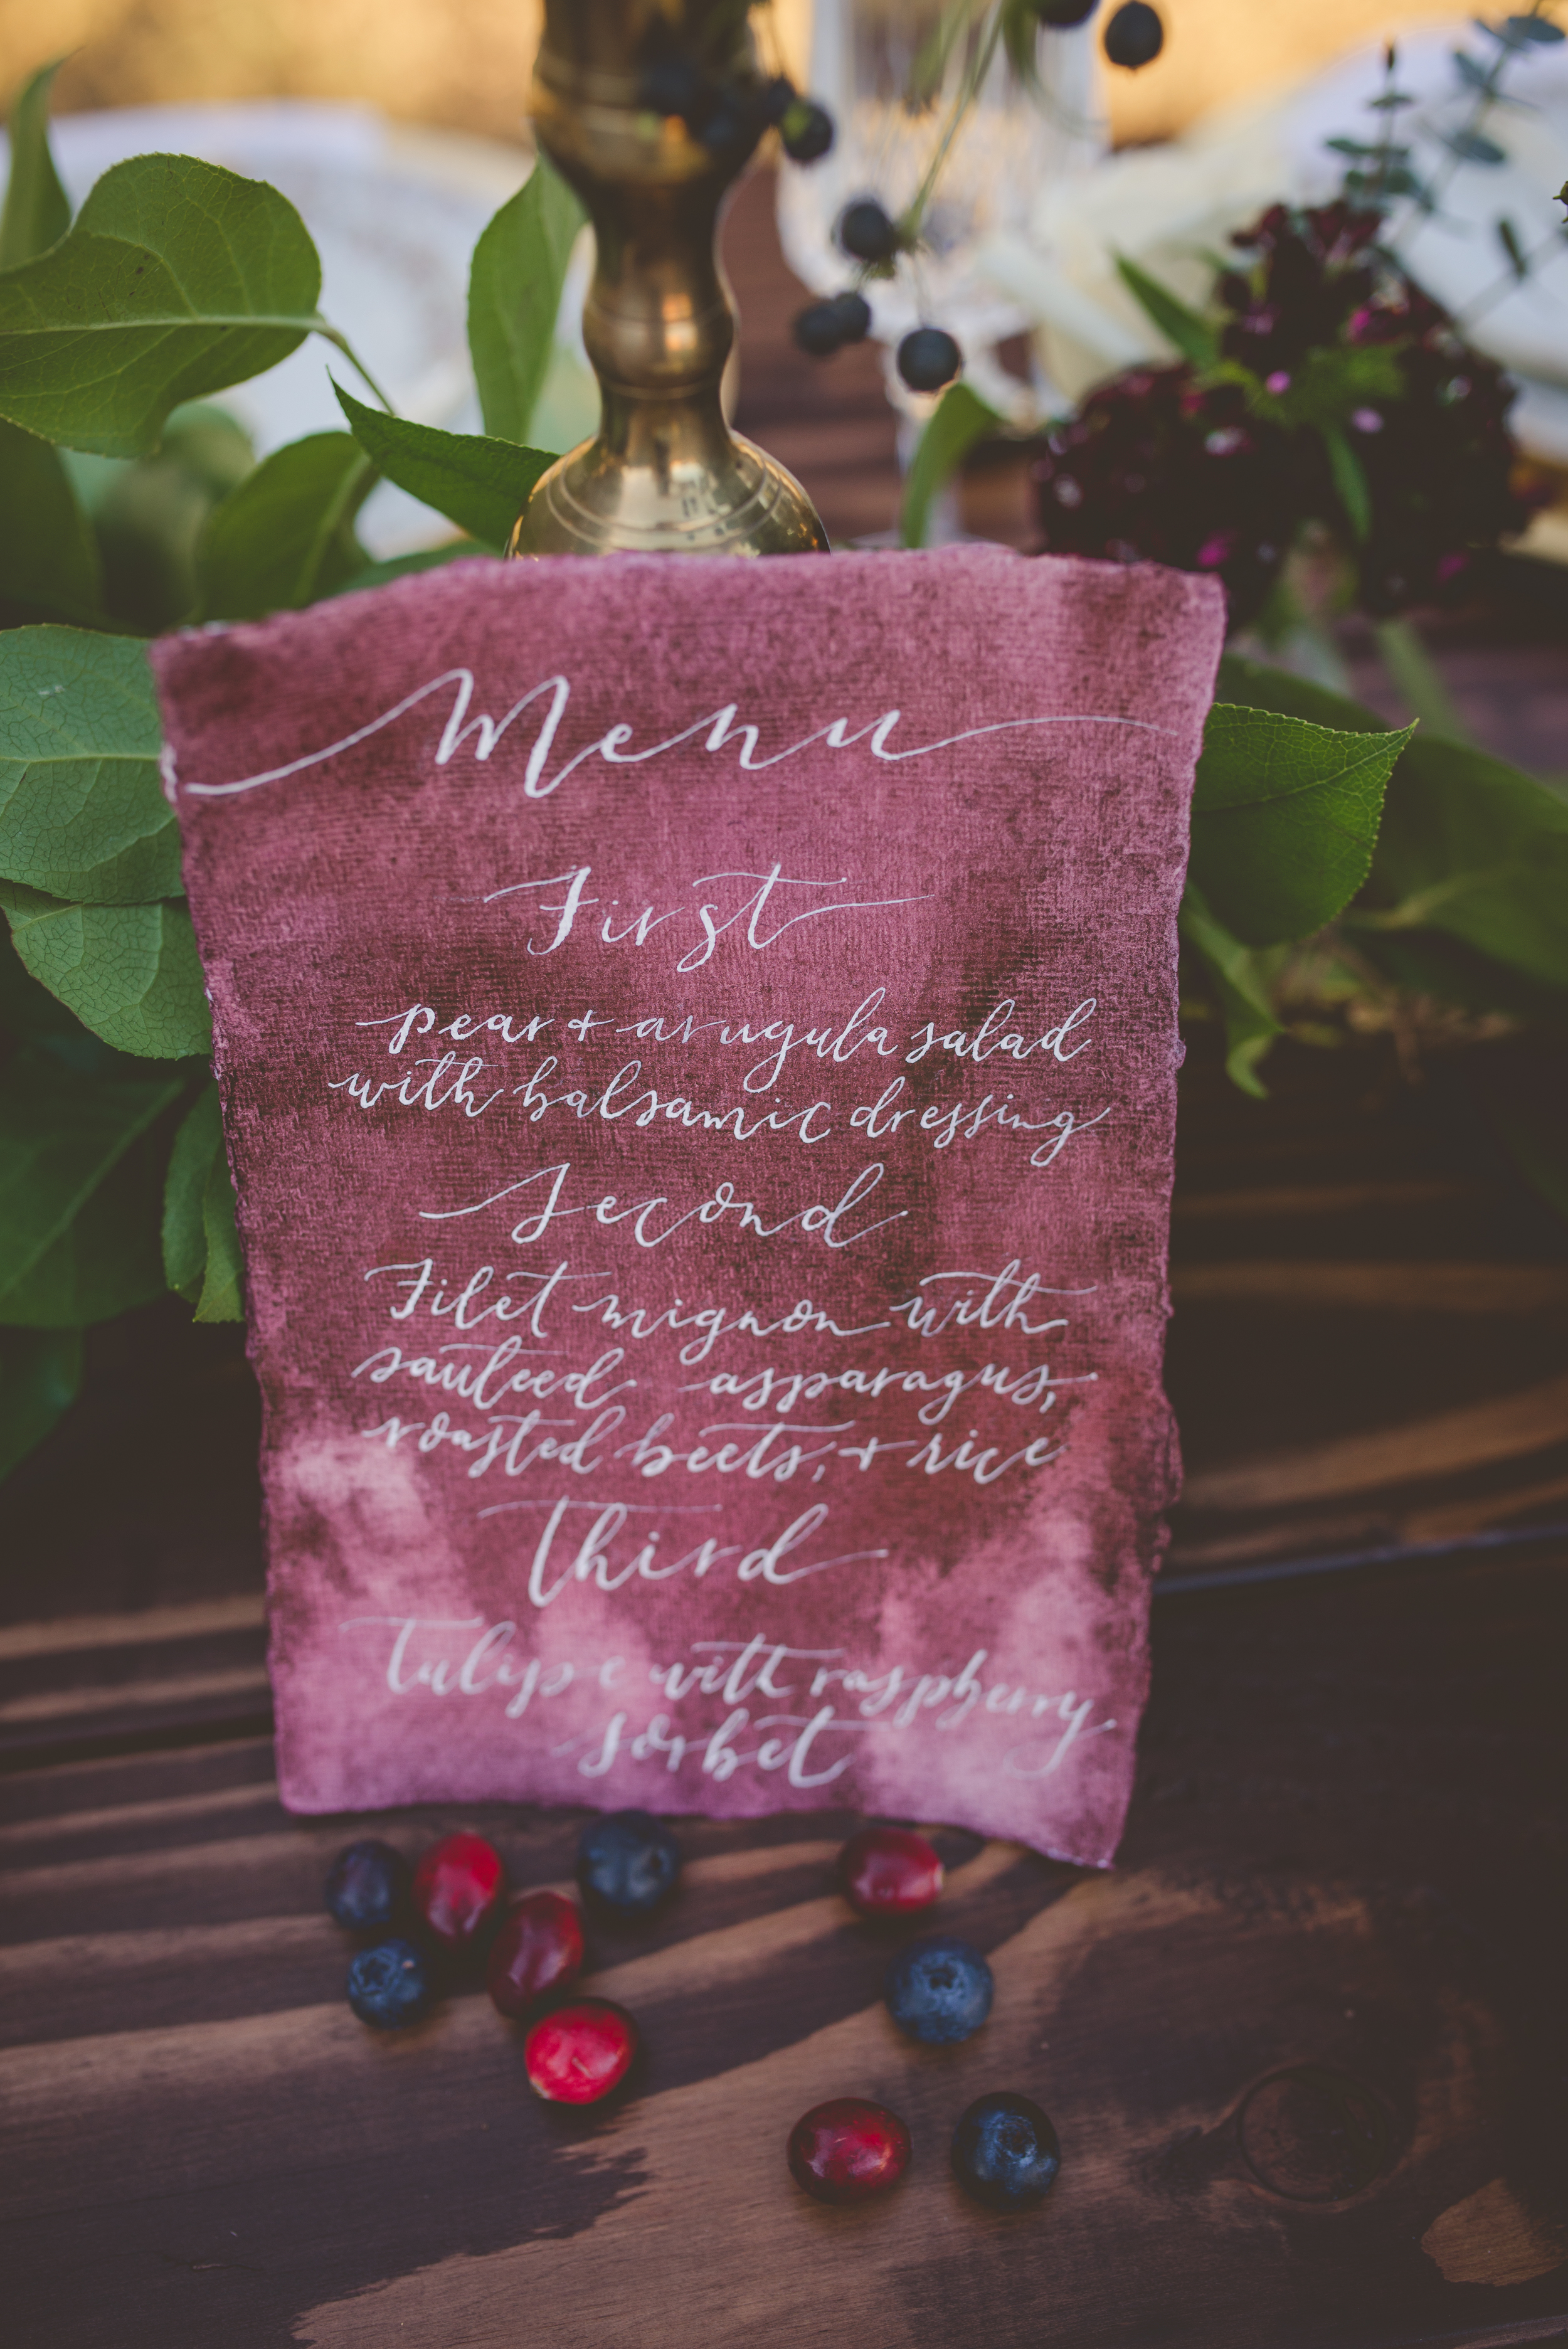 Menu
First
pear + arugula salad
with balsamic dressing
Second
Filet mignon with
sauteed asparagus,
roasted beets, + rice
Third
Tulipe with raspberry
sorbet